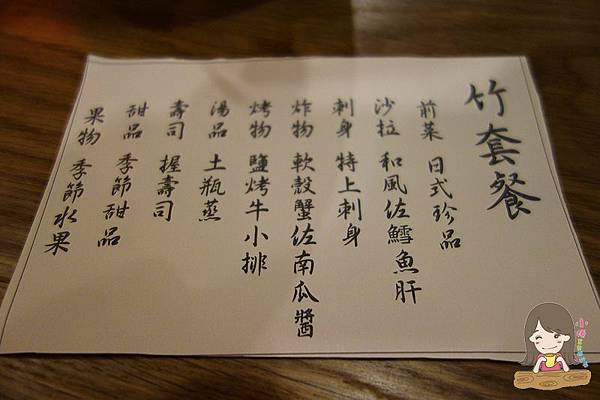 竹套餐
前菜 日式珍品
沙拉 和風佐鱈魚肝
刺身 特上刺身
炸物 軟殼蟹佐南瓜醬
烤物 鹽烤牛小排
湯品 土瓶蒸
壽司 握壽司
甜品 季節甜品
果物 季節水果